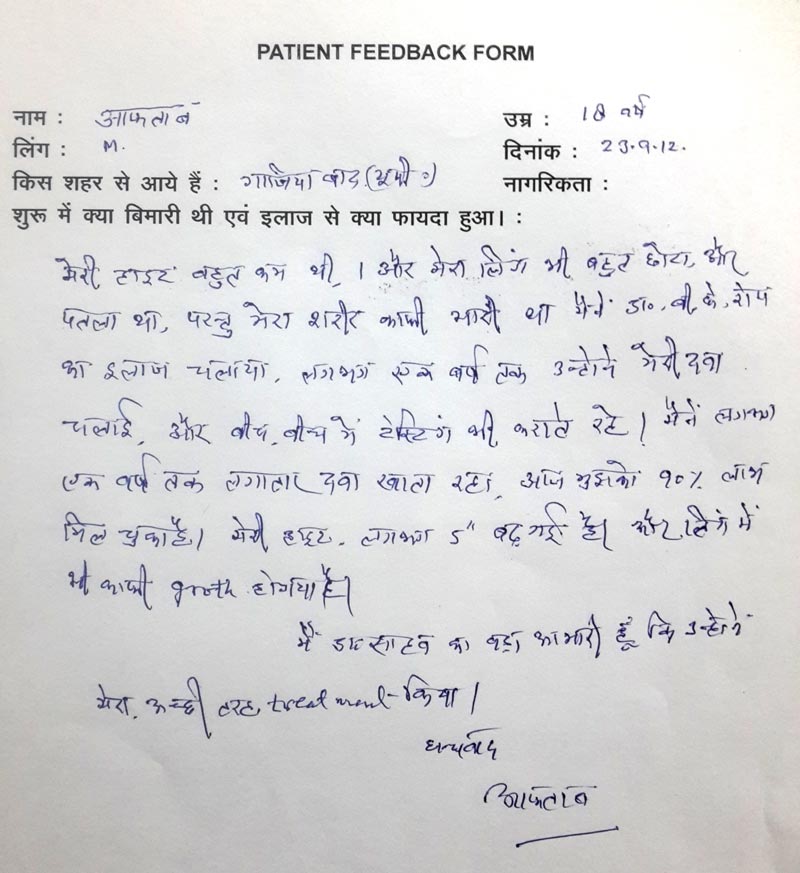 PATIENT FEEDBACK FORM
नाम : आफताब उम्र : 18 वर्ष
लिंग : M. दिनांक : 23.9.12.
किस शहर से आये हैं : गाजियाबाद (यूपी॰) नागरिकता :
शुरू में क्या बिमारी थी एवं इलाज से क्या फायदा हुआ। :
मेरी हाइट बहुत कम थी। और मेरा लिंग भी बहुत छोटा, और
पतला था, परन्तु मेरा शरीर काफी भारी था मैनें डा॰ बी.के.
का इलाज चलाया, लगभग एक वर्ष तक उन्होने मेरी दवा
चलाई, और बीच, बीच में टेस्टिंग भी कराते रहे। मैनें लगभग
एक वर्ष तक लगातार दवा खाता रहा, आज मुझको ९०% लाभ
मिल चुका है। मेरी हाइट, लगभग 5" बढ़ गई है। और लिंग में
भी काफी growth होगया है।
मैं डा॰ साहब का बड़ा आभारी हूँ कि उन्होने
मेरा, अच्छी तरह treatment किया।
धन्यवाद
आफताब